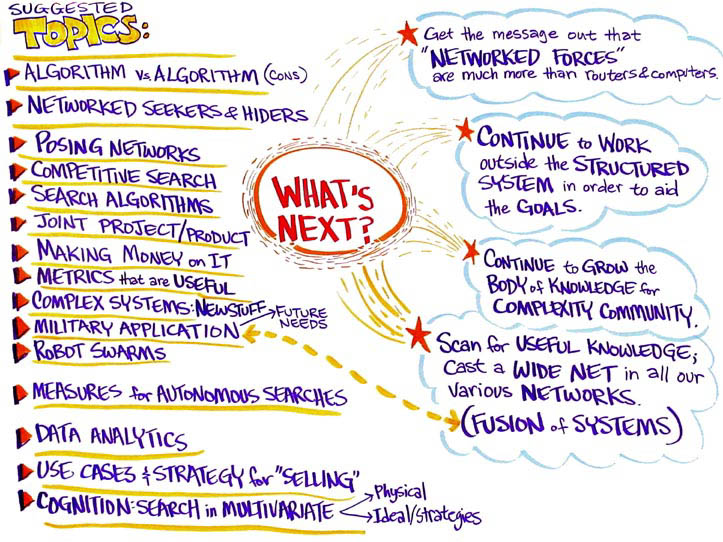 SUGGESTED
TOPICS:
ALGORITHM vs. ALGORITHM (CONS)
NETWORKED SEEKERS & HIDERS
POSING NETWORKS
COMPETITIVE SEARCH
SEARCH ALGORITHMS
JOINT PROJECT/PRODUCT
MAKING MONEY ON IT
METRICS that are USEFUL
COMPLEX SYSTEMS: NEW STUFF
→ FUTURE
NEEDS
MILITARY APPLICATION
ROBOT SWARMS
MEASURES for AUTONOMOUS SEARCHES
DATA ANALYTICS
USE CASES & STRATEGY for "SELLING"
COGNITION: SEARCH in MULTIVARIATE
→ Physical
→ Ideal/Strategies
WHAT'S
NEXT?
Get the message out that
"NETWORKED FORCES"
are much more than routers & computers.
CONTINUE to WORK
outside the STRUCTURED
SYSTEM in order to aid
the GOALS.
CONTINUE to GROW the
BODY of KNOWLEDGE for
COMPLEXITY COMMUNITY.
Scan for USEFUL KNOWLEDGE;
Cast a WIDE NET in all our
various NETWORKS.
(FUSION of SYSTEMS)